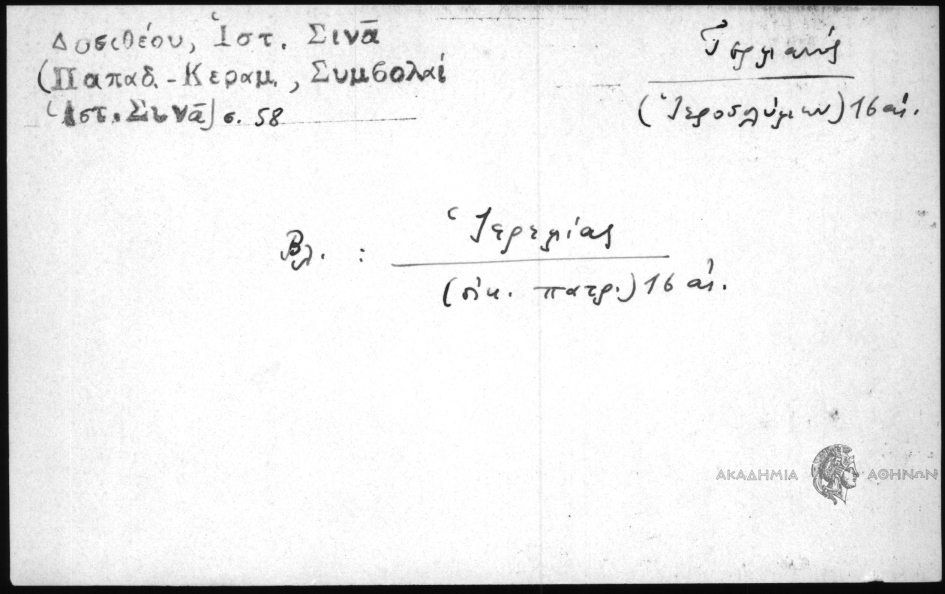 Δοσιθέου, Ἱστ. Σινᾶ
(Παπαδ.-Κεραμ., Συμβολαί
Ἱστ. Σινᾶ) σ. 58
Γερμανός
(Ἱεροσολύμων) 16 αἰ.
Βλ. : Ἱερεμίας
(οἰκ. πατρ.) 16 αἰ.
ΑΚΑΔΗΜΙΑ ΑΘΗΝΩΝ